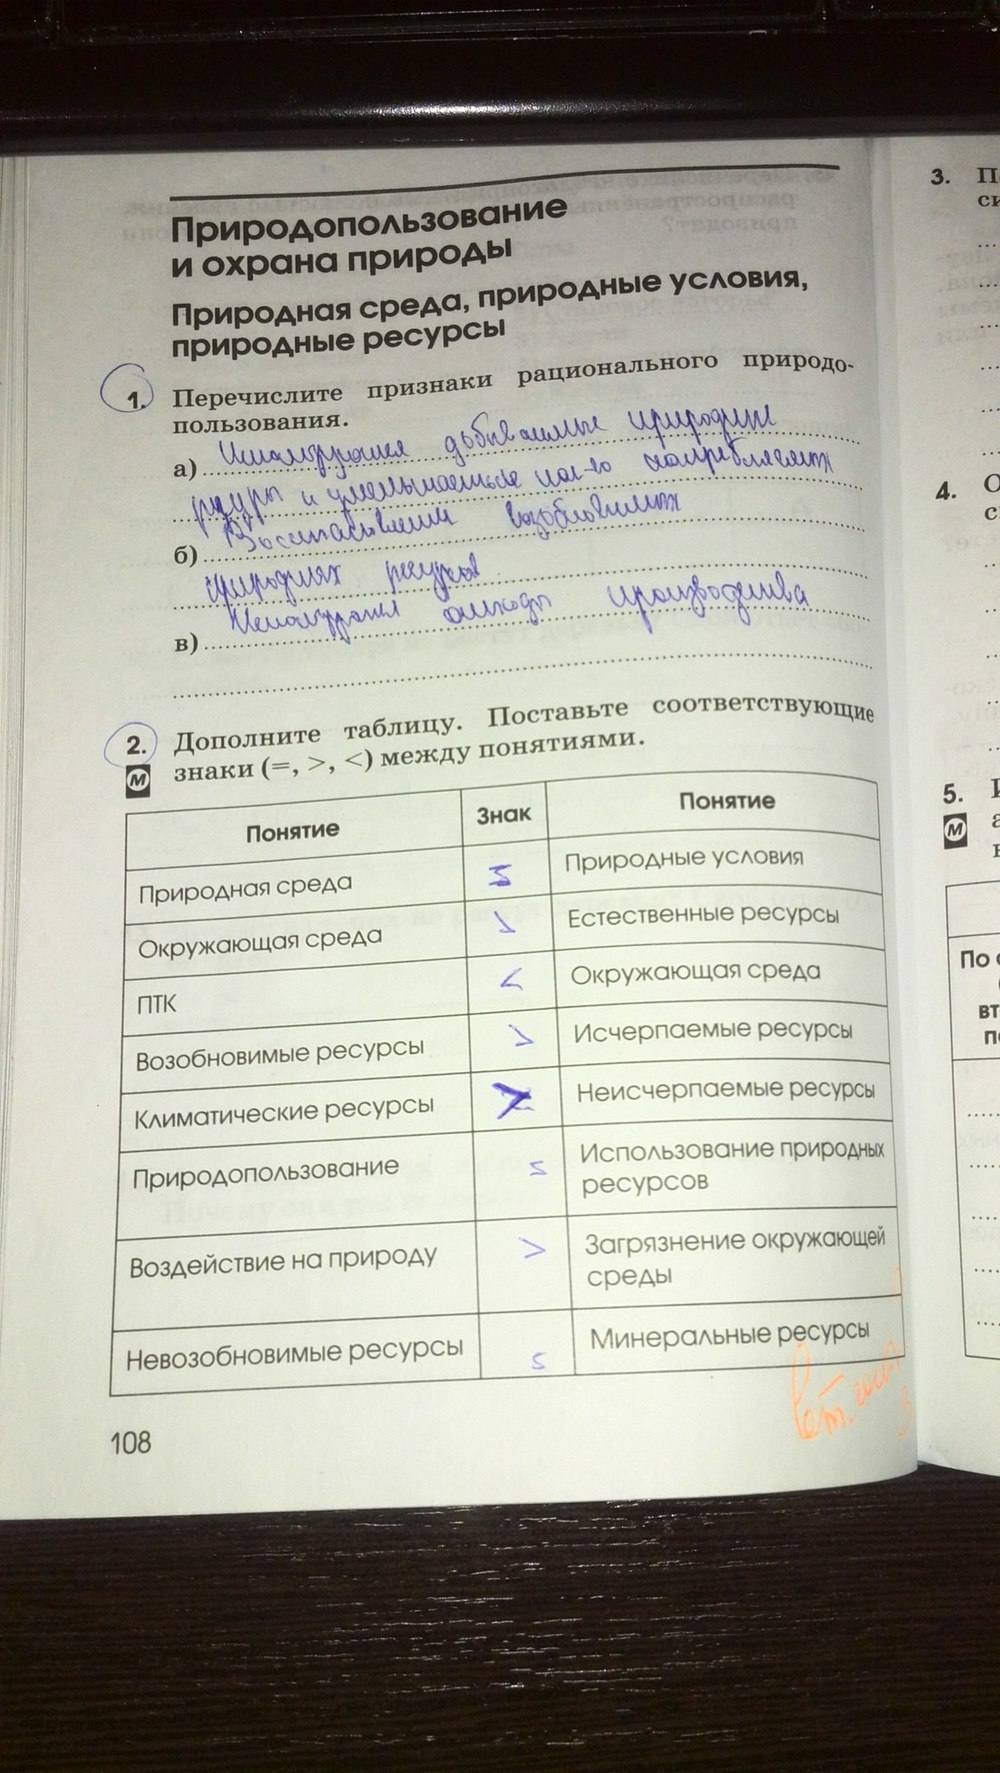 Природопользование
и охрана природы
Природная среда, природные условия,
природные ресурсы
1. Перечислите признаки рационального природо-
пользования.
а) добываемые природные
и кол-во потребляемых
б) возобновимых
природных ресурсов
в) отходы производства
2. Дополните таблицу. Поставьте соответствующие
знаки (=, >, <) между понятиями.
М
Понятие Знак Понятие
Природная среда = Природные условия
Окружающая среда > Естественные ресурсы
ПТК < Окружающая среда
Возобновимые ресурсы > Исчерпаемые ресурсы
Климатические ресурсы Неисчерпаемые ресурсы
Природопользование = Использование природных
ресурсов
Воздействие на природу > Загрязнение окружающей
среды
Невозобновимые ресурсы = Минеральные ресурсы
108
3. П
си
4. О
5.
М
По
вт